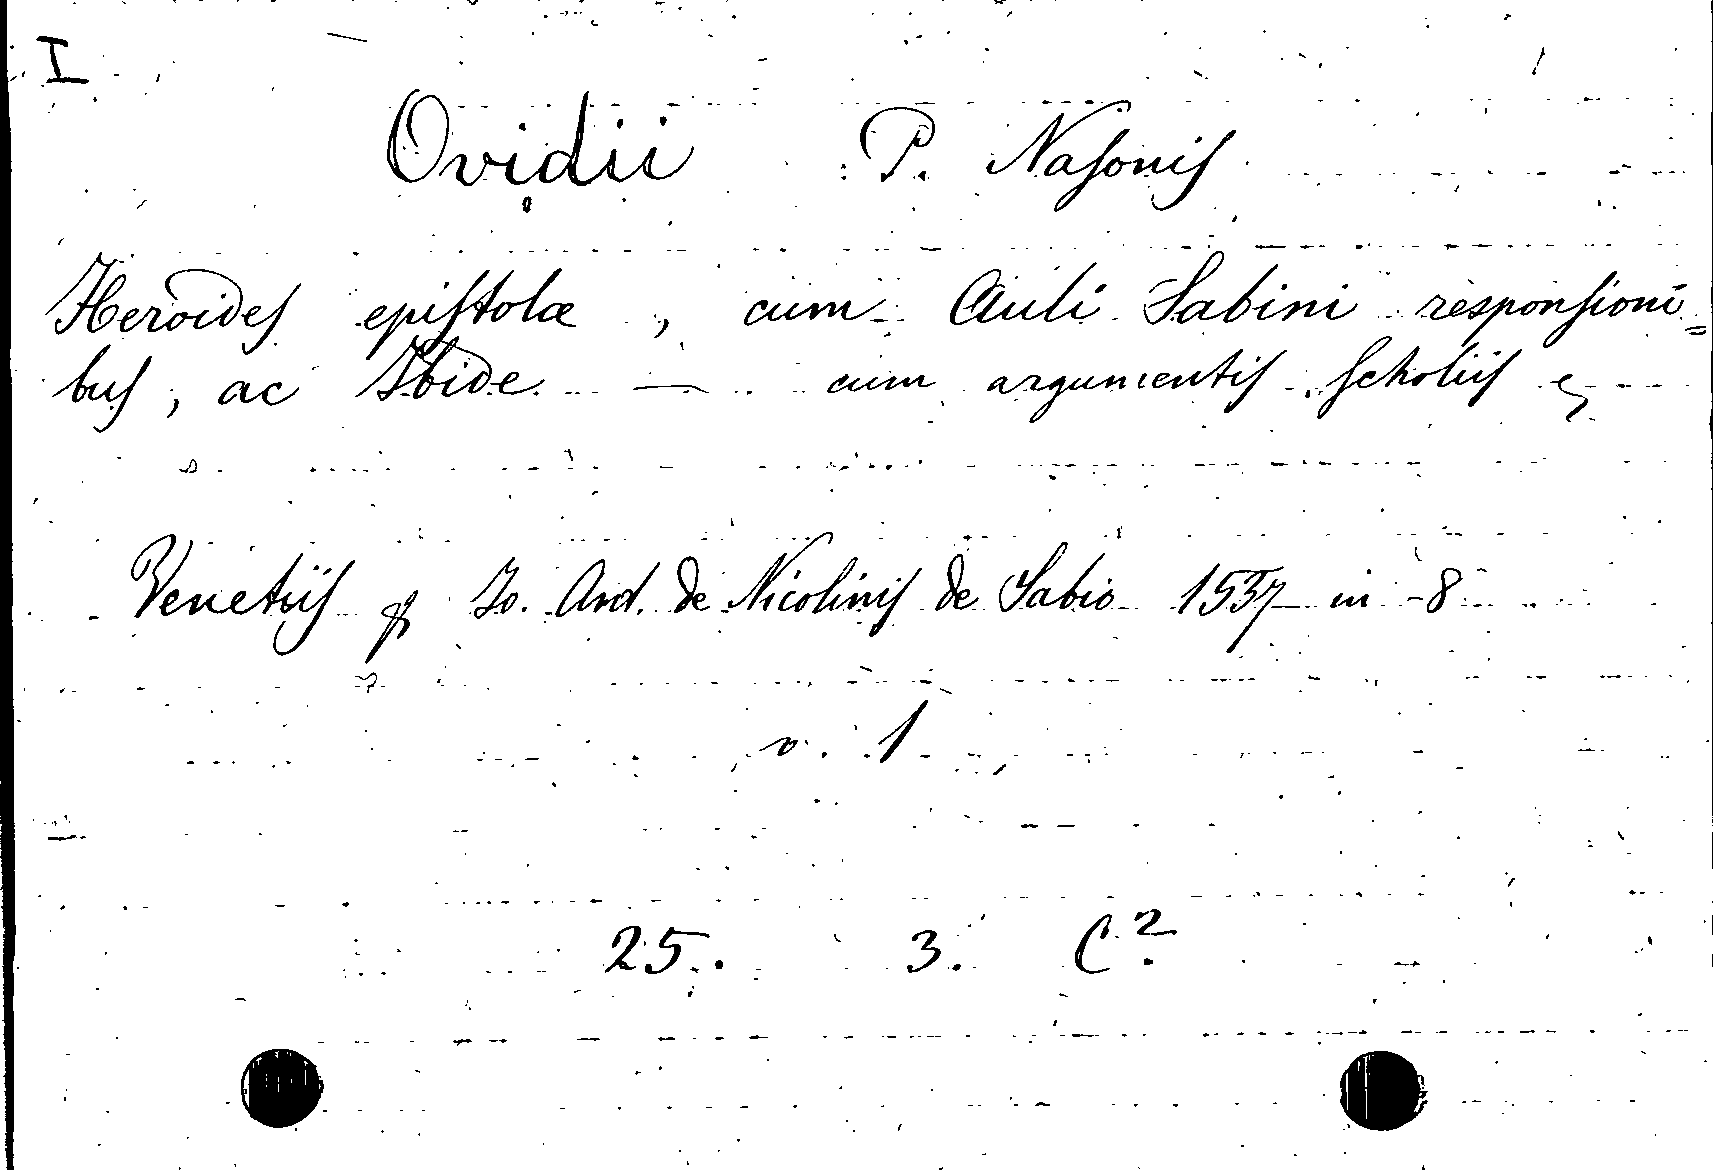 I
Ovidii P. Nasonis
Heroides epistolæ, cum Auli Sabini responsioni=
bus, ac Ibide — cum argumentis scholiis
Venetiis Jo. Ant. de Nicolinis de Sabio 1537 in 8
v. 1
25. 3. C².